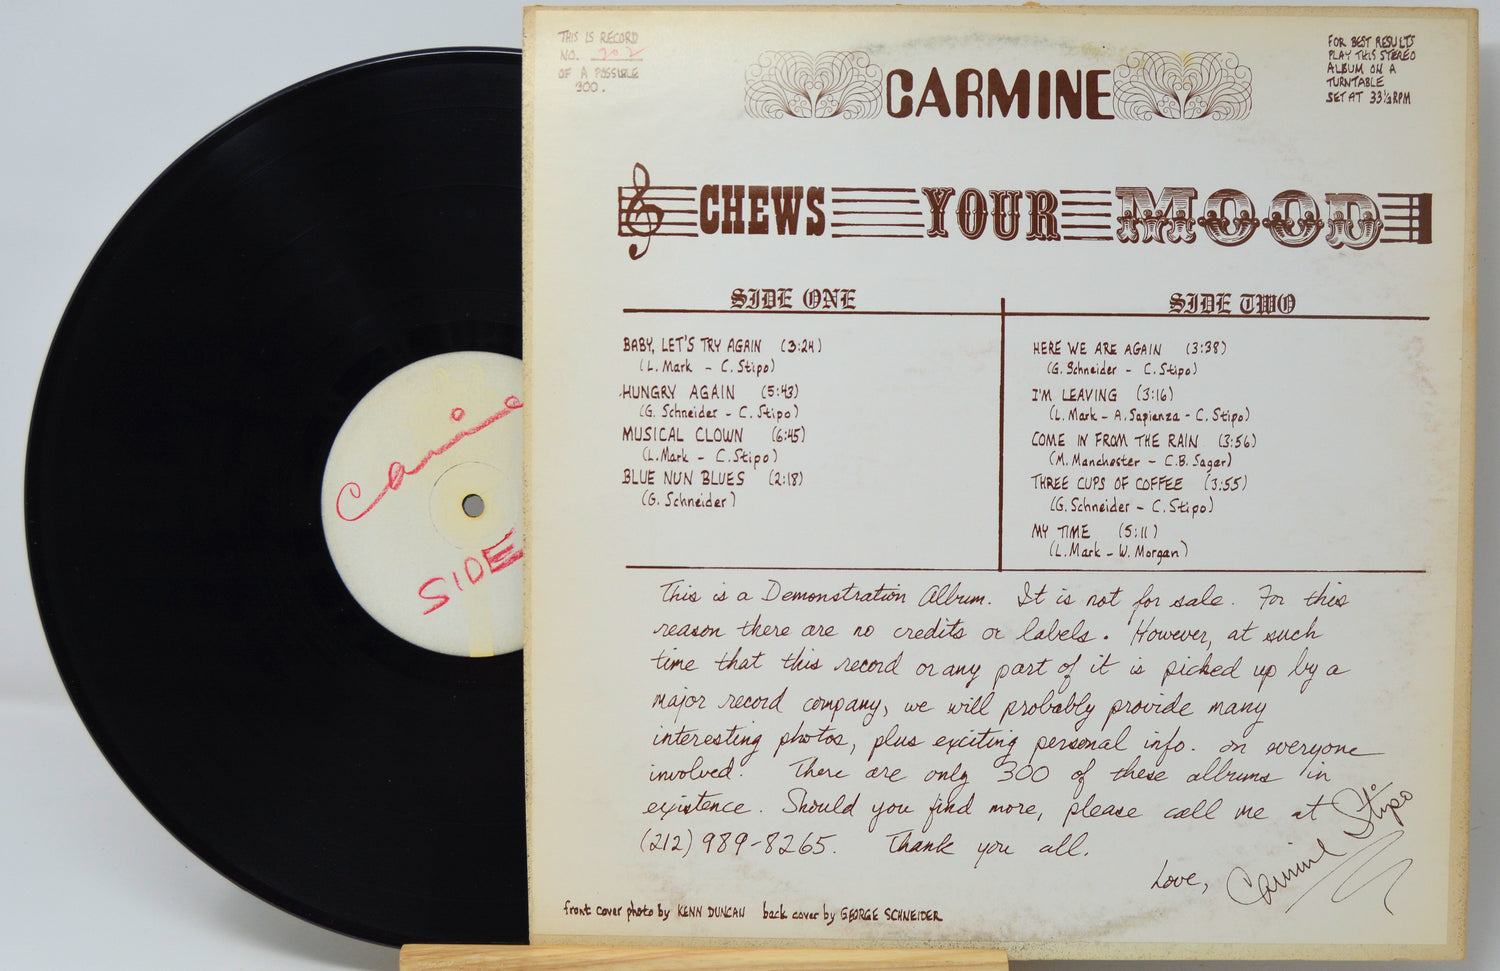 THIS IS RECORD
NO. 202
OF A POSSIBLE
300.
CARMINE
FOR BEST RESULTS
PLAY THIS STEREO
ALBUM ON A
TURNTABLE
SET AT 33⅓RPM
CHEWS YOUR MOOD
SIDE ONE
BABY, LET'S TRY AGAIN (3:24)
(L. Mark - C. Stipo)
HUNGRY AGAIN (5:43)
(G. Schneider - C. Stipo)
MUSICAL CLOWN (6:45)
(L. Mark - C. Stipo)
BLUE NUN BLUES (2:18)
(G. Schneider)
SIDE TWO
HERE WE ARE AGAIN (3:38)
(G. Schneider - C. Stipo)
I'M LEAVING (3:16)
(L. Mark - A. Sapienza - C. Stipo)
COME IN FROM THE RAIN (3:56)
(M. Manchester - C.B. Sager)
THREE CUPS OF COFFEE (3:55)
(G. Schneider - C. Stipo)
MY TIME (5:11)
(L. Mark - W. Morgan)
This is a Demonstration Album. It is not for sale. For this
reason there are no credits or labels. However, at such
time that this record or any part of it is picked up by a
major record company, we will probably provide many
interesting photos, plus exciting personal info. on everyone
involved. There are only 300 of these albums in
existence. Should you find more, please call me at
(212) 989-8265. Thank you all.
Love,
Carmine Stipo
front cover photo by KENN DUNCAN back cover by GEORGE SCHNEIDER
Carmine
SIDE